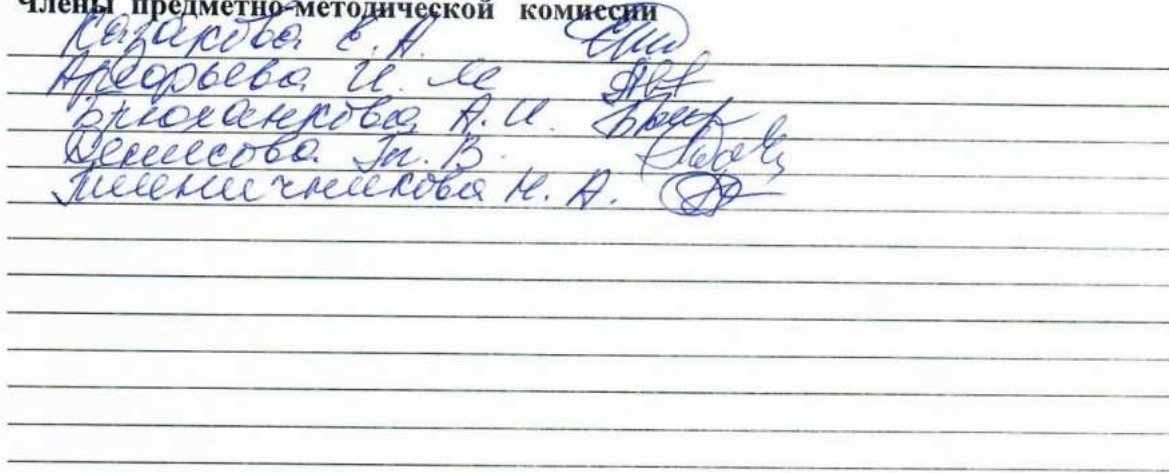 Члены предметно-методической комиссии
Казакова Е. А.
И. М.
Брюханкова А. И.
Денисова Т. В.
Пшеничникова Н. А.